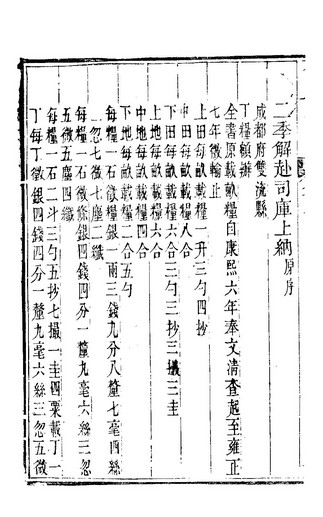 二季解赴司庫上納原序
成都府雙流縣
丁糧額辦
全書原載畝糧自康熙六年奉文清查起至雍正
七年徵輸止
上田每畝載糧一升三勺四抄
中田每畝載糧八合
下田每畝載糧六合三勺三抄三撮三圭
上地每畝載糧六合
中地每畝載糧四合
下地每畝載糧二合五勺
每糧一石徵糧銀一兩三錢九分八釐七毫四絲
一忽七微七塵二纖
每糧一石徵條銀四錢四分一釐九毫六絲三忽
五微五塵四纖
每糧一石二斗三勺五抄七撮一圭四粟載丁一
丁每丁徵銀四錢四分一釐九毫六絲三忽五微